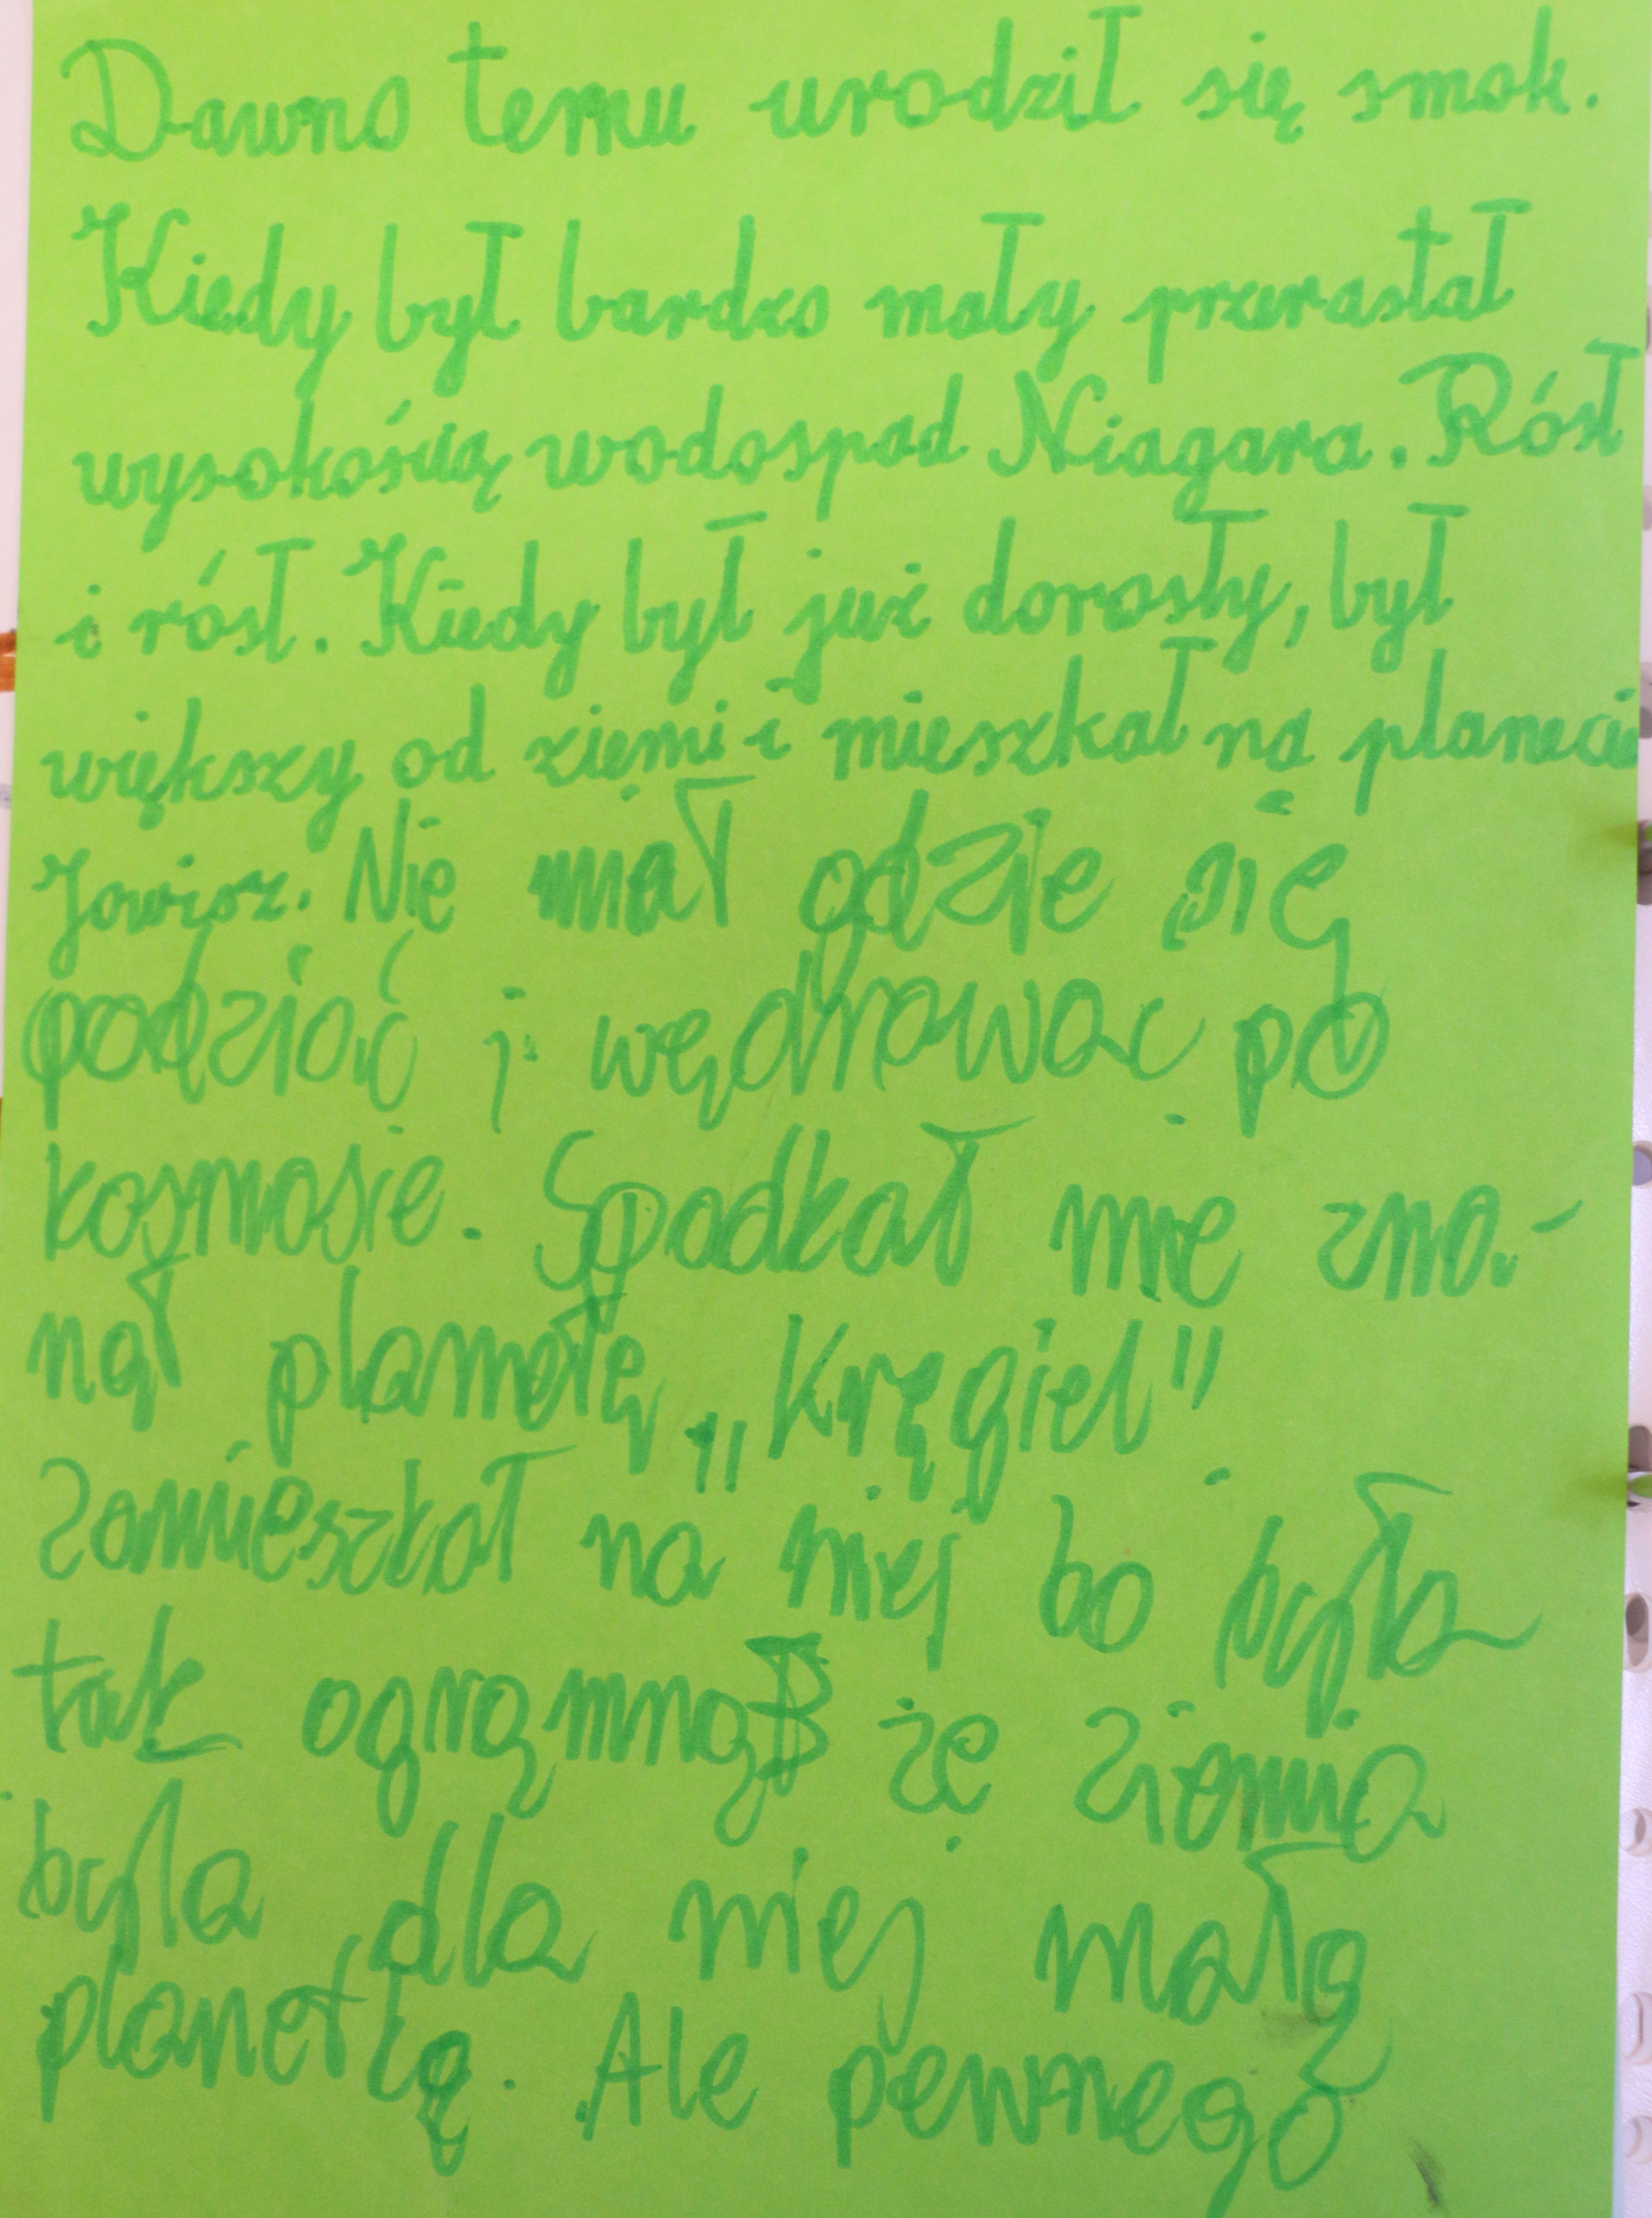 Dawno temu urodził się smok.
Kiedy był bardzo mały przerastał
wysokością wodospad Niagara. Rósł
i rósł. Kiedy był już dorosły, był
większy od ziemi i mieszkał na planecie
Jowisz. Nie miał gdzie się
podziać i wędrować po
kosmosie. Spodkał nie zna-
ną planetę „Kręgiel"
Zamieszkał na niej bo była
tak ogromna że ziemia
była dla niej małą
planetką. Ale pewnego